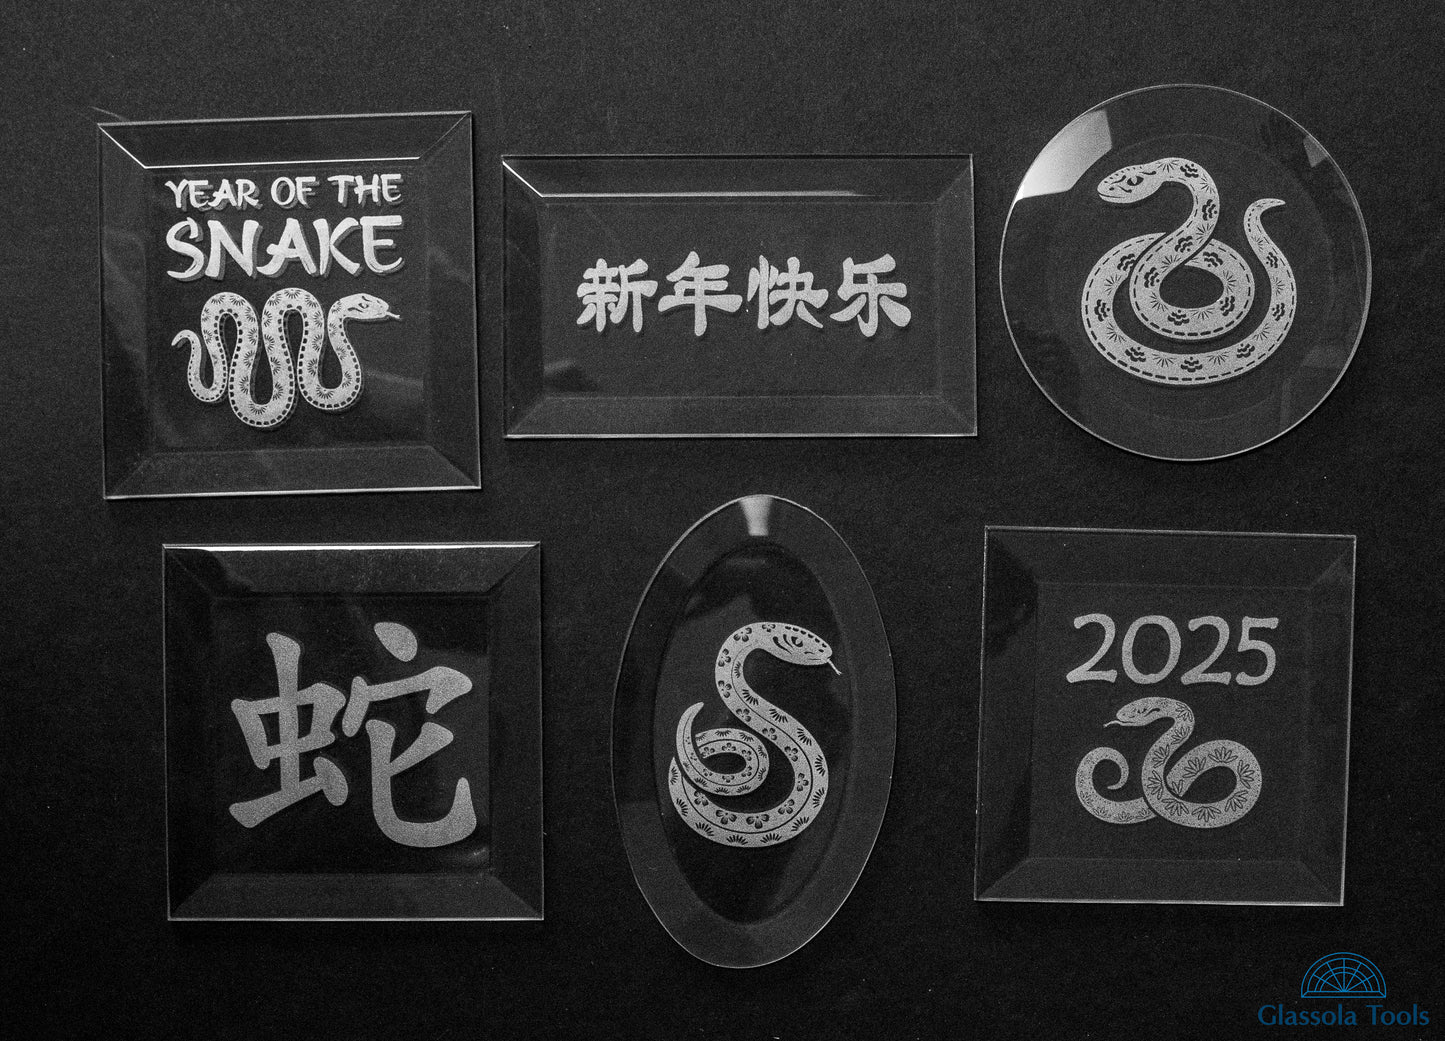 YEAR OF THE
SNAKE
新年快乐
蛇
2025
Glassola Tools